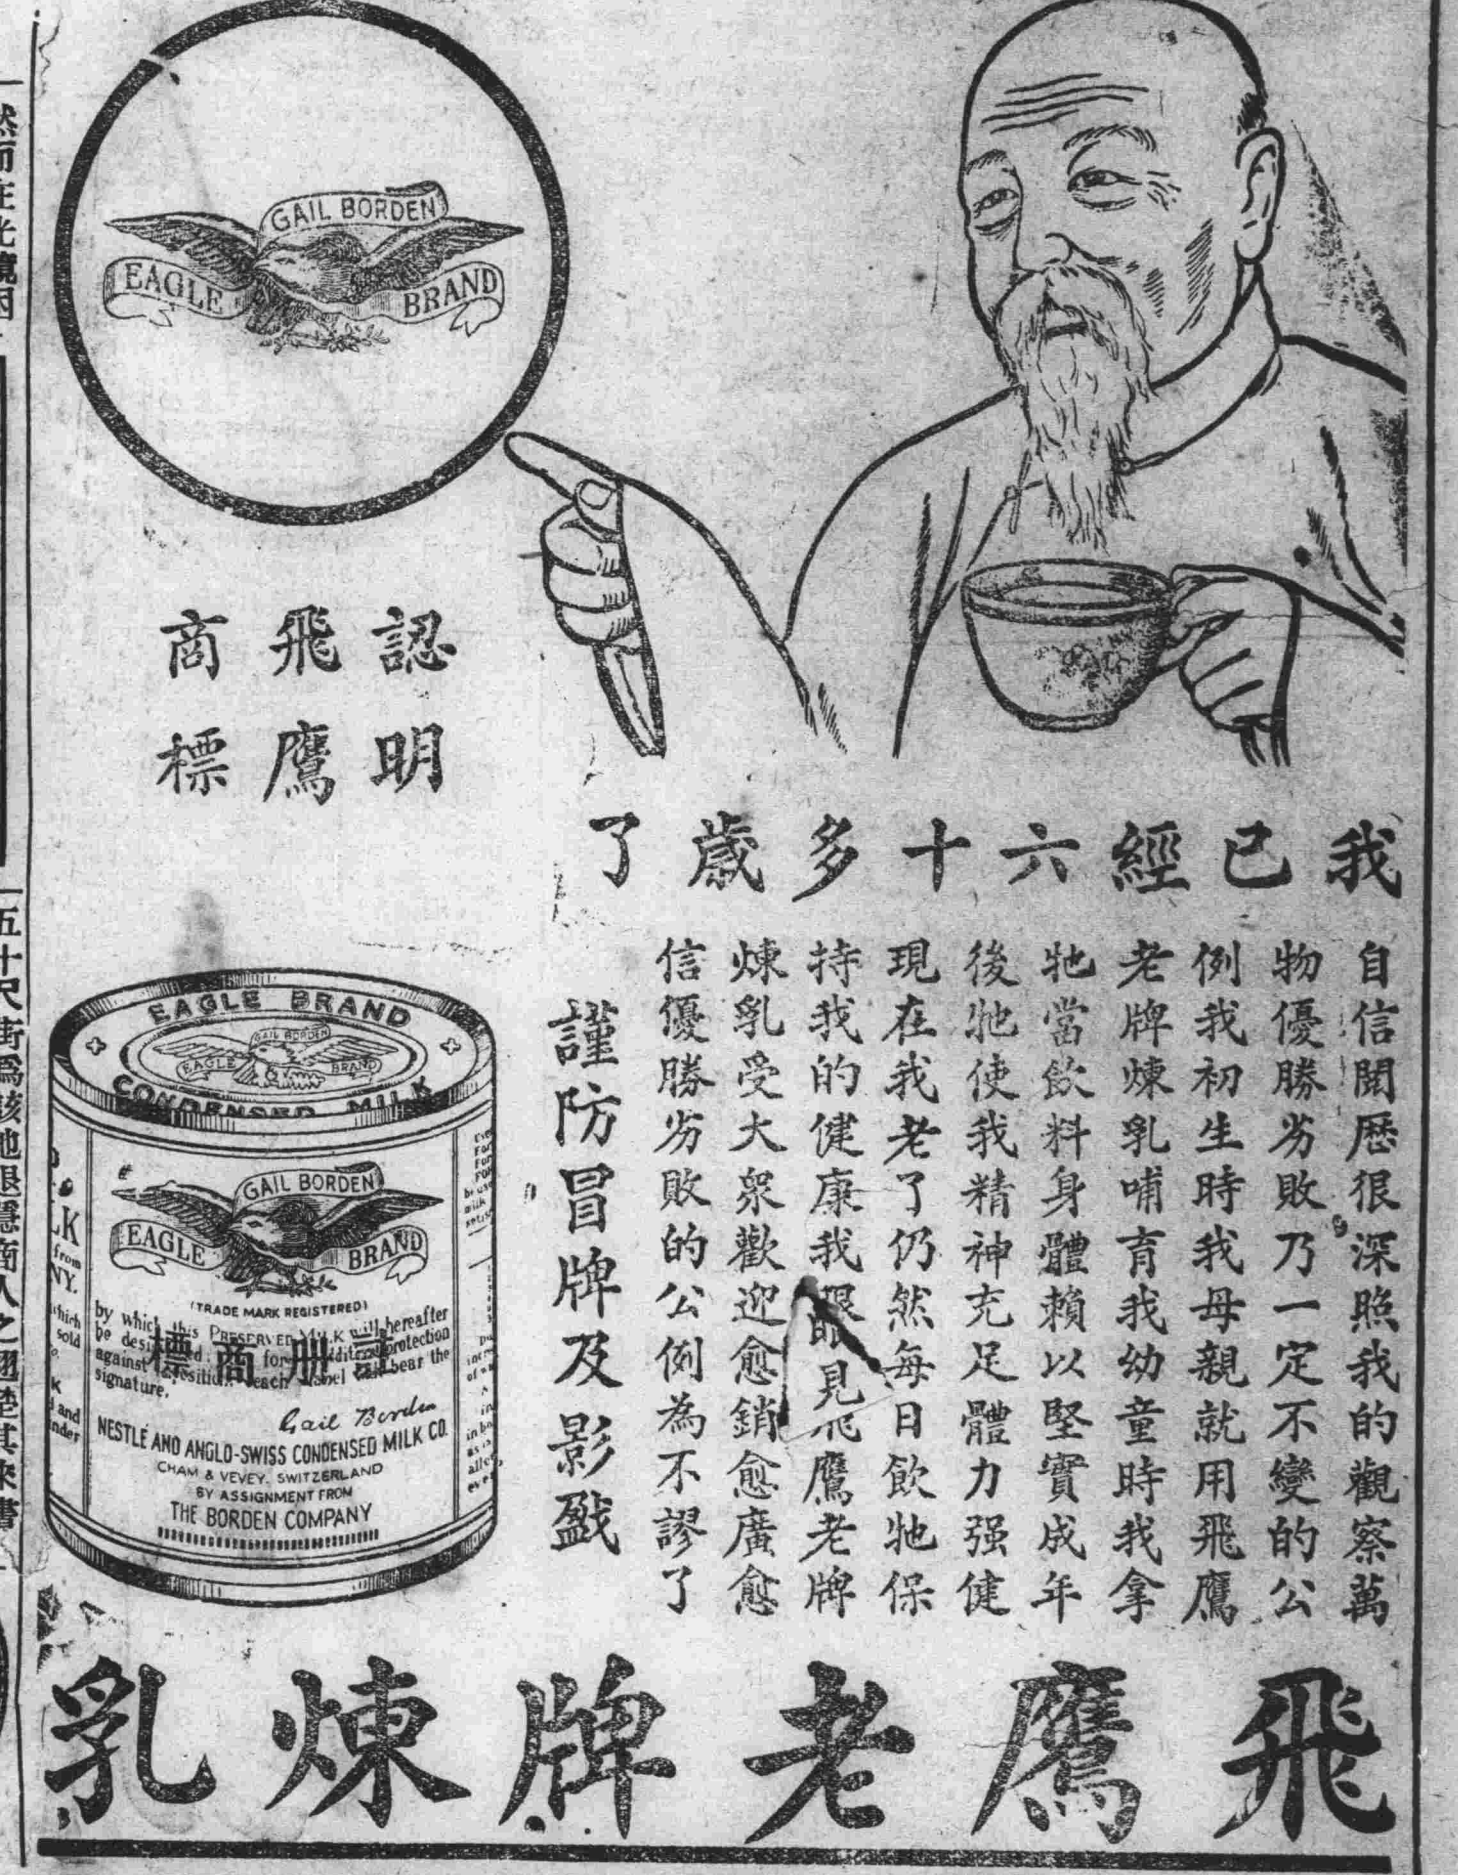 GAIL BORDEN
EAGLE BRAND
認明
飛鷹
商標
我已經六十多歲了
自信閱厯很深照我的觀察萬
物優勝劣敗乃一定不變的公
例我初生時我母親就用飛鷹
老牌煉乳哺育我幼童時我拿
牠當飲料身體賴以堅實成年
後牠使我精神充足體力强健
現在我老了仍然每日飲牠保
持我的健康我眼見飛鷹老牌
煉乳受大眾歡迎愈銷愈廣愈
信優勝劣敗的公例為不謬了
謹防冒牌及影戤
EAGLE BRAND
GAIL BORDEN
EAGLE BRAND
CONDENSED MILK
GAIL BORDEN
EAGLE BRAND
(TRADE MARK REGISTERED)
by which this PRESERVED MILK will hereafter
be for protection
against each label bear the
signature.
冊商標
Gail Borden
NESTLÉ AND ANGLO-SWISS CONDENSED MILK CO.
CHAM & VEVEY, SWITZERLAND
BY ASSIGNMENT FROM
THE BORDEN COMPANY
飛鷹老牌煉乳